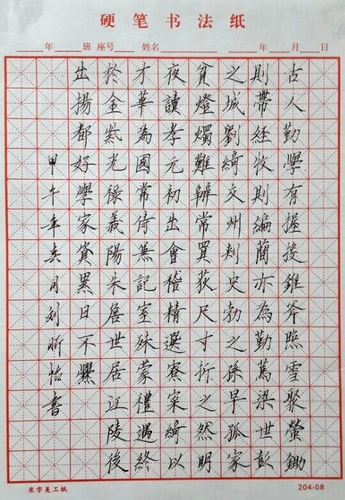 硬笔书法纸
年 班 座号 姓名 年 月 日
古人勤學有握投錐斧照雪聚螢鋤
則帶經牧則編簡亦為勤篤梁世彭
之城劉綺交州刺史勃之孫早孤家
貧燈燭難辦常買荻尺寸折之然明
夜讀孝元初出會稽精選寮寀綺以
才華為國常侍兼記室殊蒙禮遇終
於金紫光祿義陽朱詹世居江陵後
出揚都好學家資累日不爨
甲午年春月刘昕怡書
米字美工紙
204-08